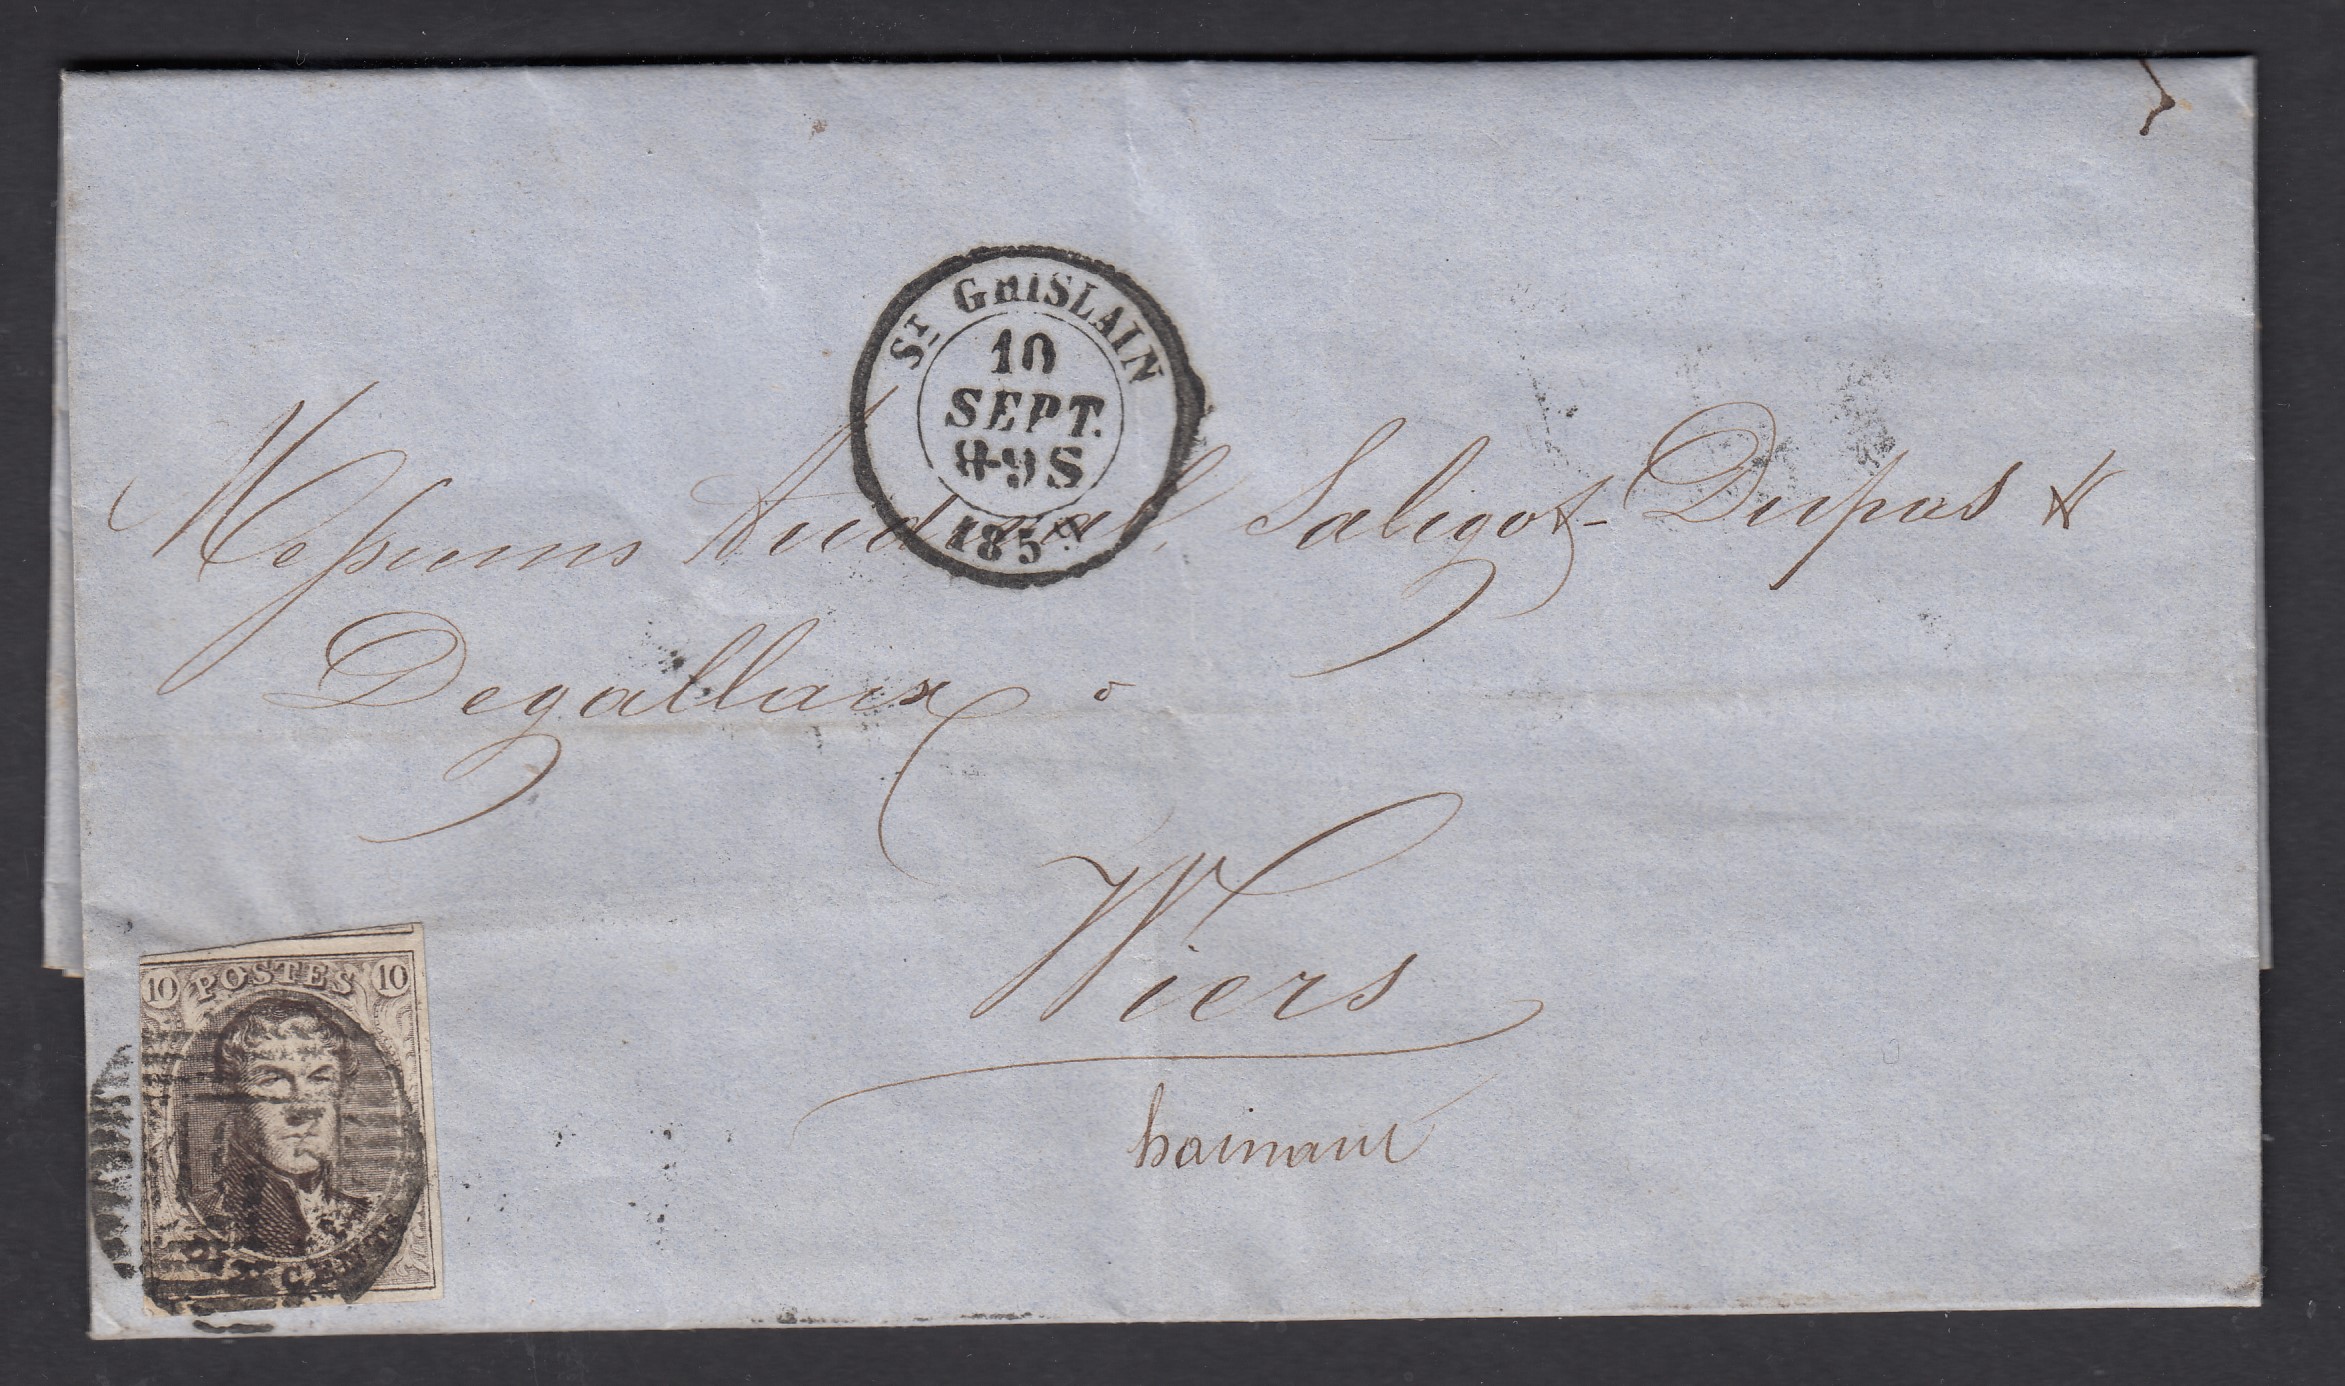 St GHISLAIN
10
SEPT.
8-9S
185
Messieurs Saligot-Dupas &
Degallaix à
Wiers
hainaut
10 POSTES 10